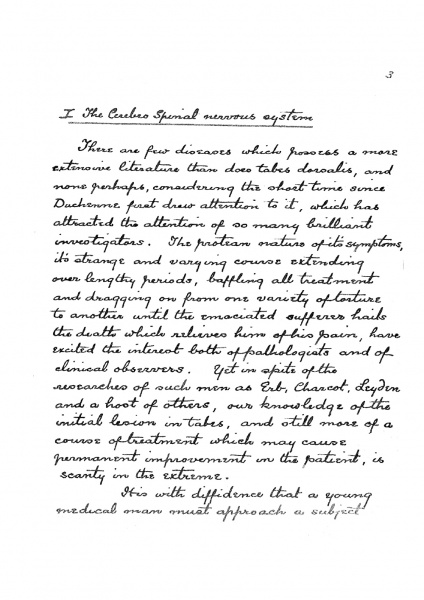 3
I The Cerebro Spinal nervous system
There are few diseases which possess a more
extensive literature than does tabes dorsalis, and
none perhaps, considering the short time since
Duchenne first drew attention to it, which has
attracted the attention of so many brilliant
investigators. The protean nature of its symptoms,
its strange and varying course extending
over lengthy periods, baffling all treatment
and dragging on from one variety of torture
to another until the emaciated sufferer hails
the death which relieves him of his pain, have
excited the interest both of pathologists and of
clinical observers. Yet in spite of the
researches of such men as Erb, Charcot, Leyden
and a host of others, our knowledge of the
initial lesion in tabes, and still more of a
course of treatment which may cause
permanent improvement in the patient, is
scanty in the extreme.
It is with diffidence that a young
medical man must approach a subject